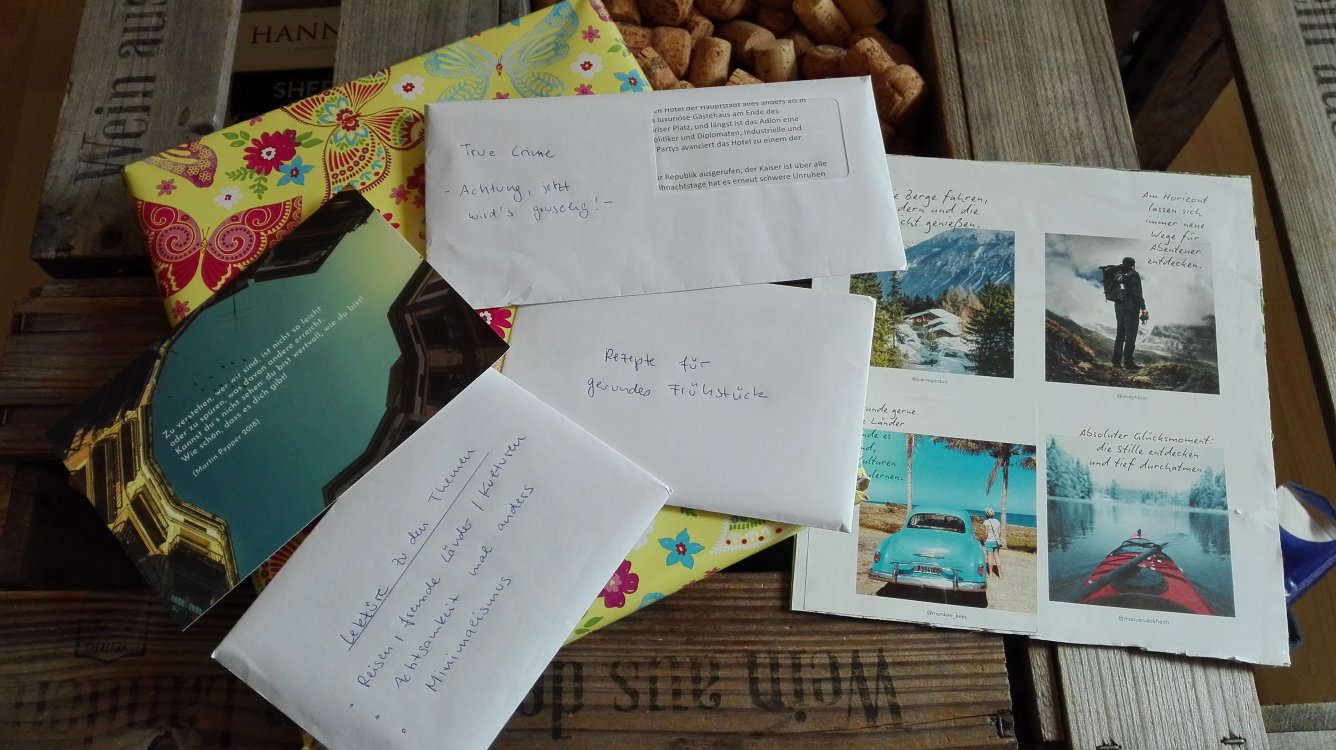 Wein aus
HANN
SHE
True Crime
- Achtung, jetzt
wird's gruselig! -
n Hotel der Hauptstadt alles anders als
s luxuriöse Gästehaus am Ende des
riser Platz, und längst ist das Adlon eine
olitiker und Diplomaten, Industrielle und
Partys avanciert das Hotel zu einem der
ur Republik ausgerufen, der Kaiser ist über alle
ihnachtstage hat es erneut schwere Unruhen
Zu verstehen, wer wir sind, ist nicht so leicht
oder zu spüren, was davon andere erreicht.
Kannst du's nicht sehen: du bist wertvoll, wie du bist!
Wie schön, dass es dich gibt!
(Martin Pepper 2018)
Rezepte für
gesundes Frühstück
Lektüre zu den Themen
• Reisen / fremde Länder / Kulturen
• Achtsamkeit mal anders
Minimalismus
e Berge fahren,
dern und die
cht genießen.
@pierregordon
Am Horizont
lassen sich
immer neue
Wege für
Abenteuer
entdecken.
unde gerne
e Länder
nde es
nd,
ulturen
lernen.
Absoluter Glücksmoment:
die Stille entdecken
und tief durchatmen.
Wein aus d